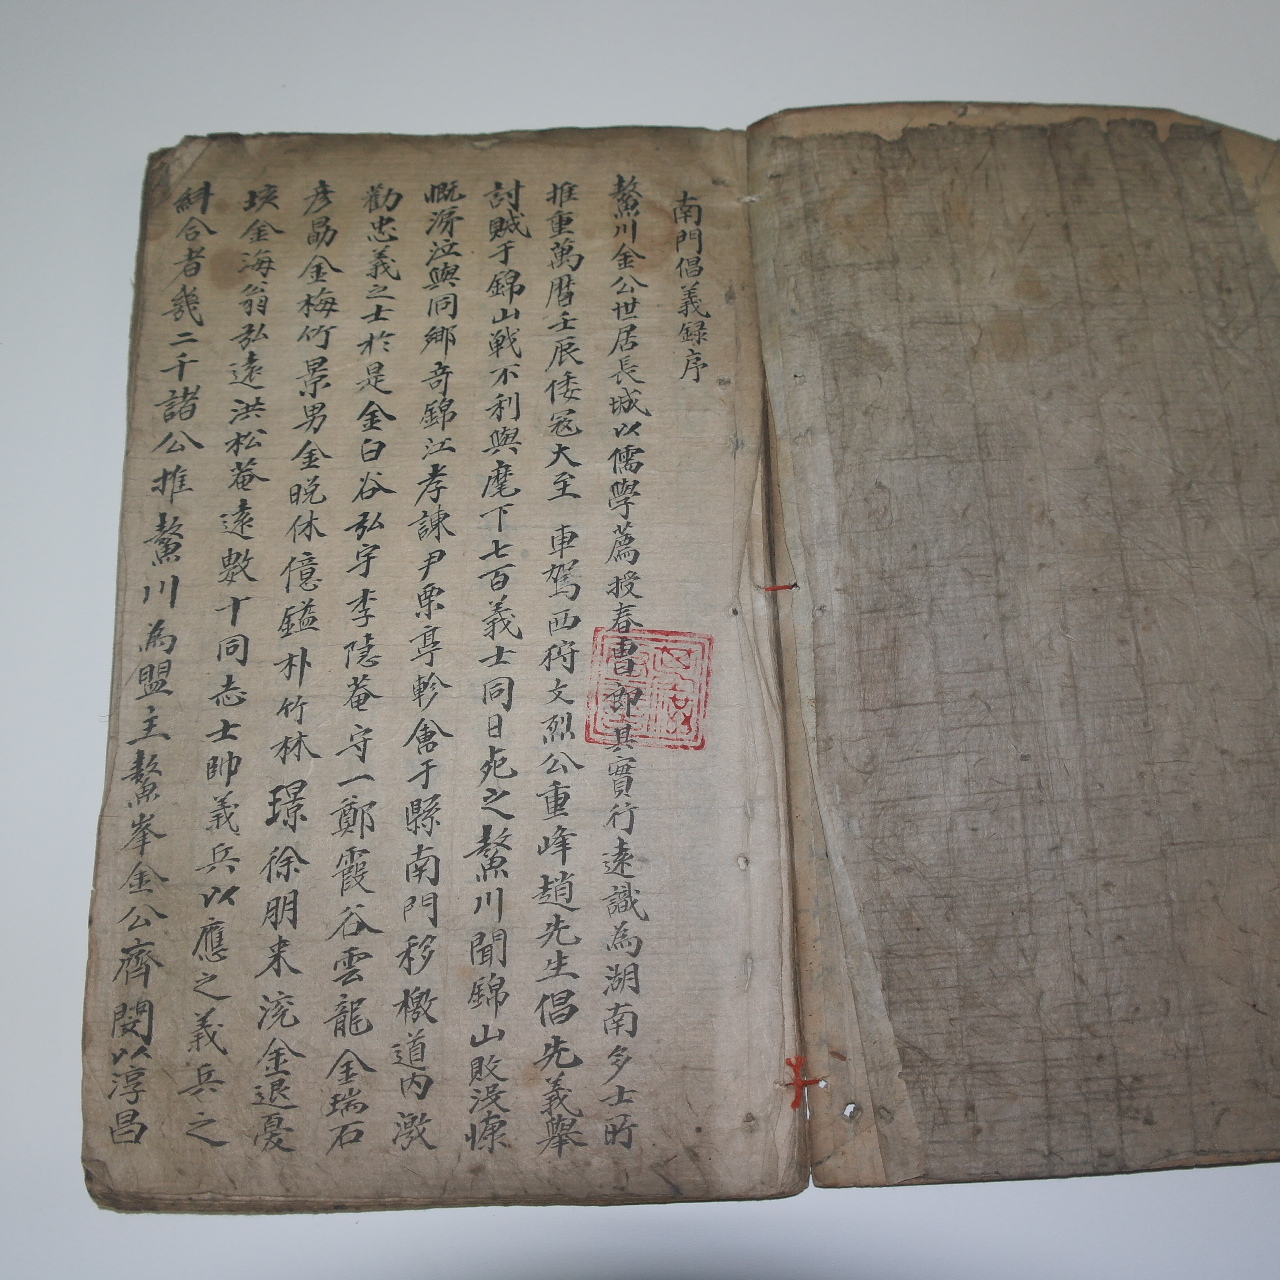 南門倡義録序
鰲川金公世居長城以儒學薦授春曹郎其實行遠識為湖南多士所
推重萬曆壬辰倭冦大至 車駕西狩文烈公重峰趙先生倡先義舉
討賊于錦山戰不利與麾下七百義士同日死之鰲川聞錦山敗沒慷
慨涕泣與同鄉奇錦江孝諫尹栗亭軫會于縣南門移檄道内激
勸忠義之士於是金白谷弘宇李隱菴守一鄭霞谷雲龍金瑞石
彦勗金梅竹景男金晩休億鎰朴竹林璟徐朋来浣金退憂
垓金海翁弘遠洪松菴遠數十同志士帥義兵以應之義兵之
糾合者幾二千諸公推鰲川為盟主鰲峯金公齊閔以淳昌